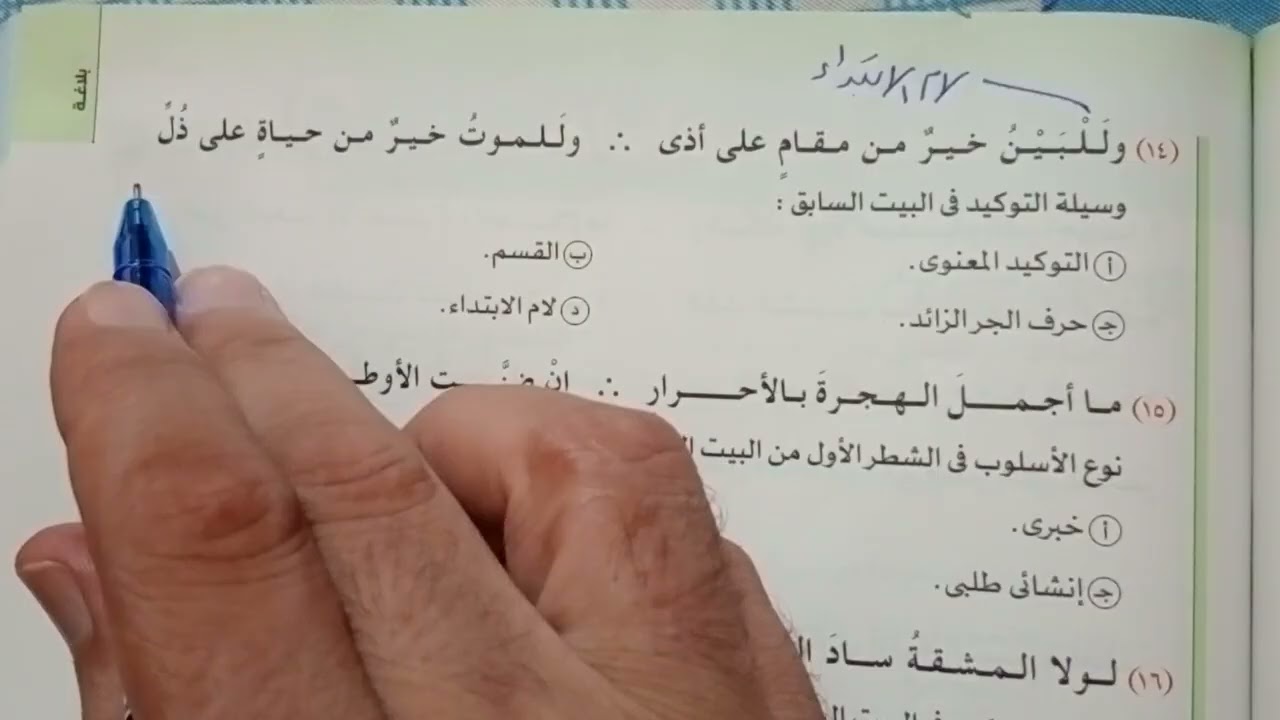 بلاغة
لام الابتداء
(١٤) ولَلْبَيْنُ خيرٌ من مقامٍ على أذى ∴ ولَلموتُ خيرٌ من حياةٍ على ذُلِّ
وسيلة التوكيد فى البيت السابق :
أ التوكيد المعنوى. ب القسم.
جـ حرف الجر الزائد. د لام الابتداء.
(١٥) ما أجمـلَ الـهـجـرةَ بـالأحـرار ∴ إنْ
نوع الأسلوب فى الشطر الأول من البيت
أ خبرى.
جـ إنشائى طلبى.
(١٦) لـولا الـمـشـقـةُ سـادَ